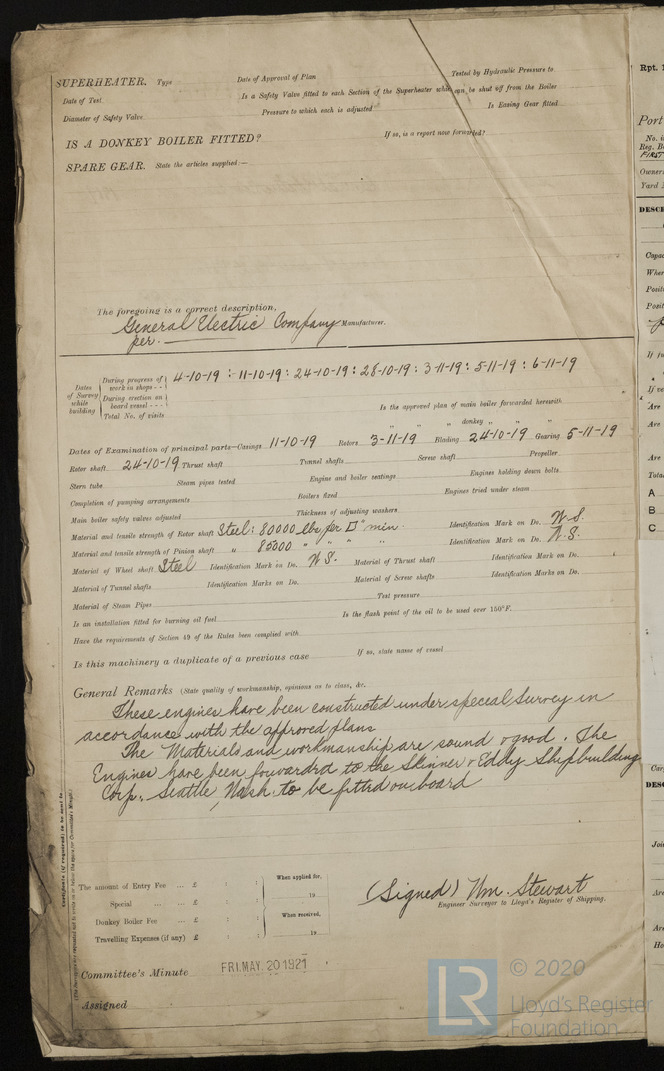 SUPERHEATER. Type Date of Approval of Plan Tested by Hydraulic Pressure to
Date of Test Is a Safety Valve fitted to each Section of the Superheater which can be shut off from the Boiler
Diameter of Safety Valve Pressure to which each is adjusted Is Easing Gear fitted
IS A DONKEY BOILER FITTED? If so, is a report now forwarded?
SPARE GEAR. State the articles supplied:—
The foregoing is a correct description,
General Electric Company Manufacturer.
per. —
Dates of Survey while building
During progress of work in shops - - 4-10-19 : 11-10-19 : 24-10-19 : 28-10-19 : 3-11-19 : 5-11-19 : 6-11-19
During erection on board vessel - - -
Total No. of visits
Is the approved plan of main boiler forwarded herewith
" " " donkey " " "
Dates of Examination of principal parts—Casings 11-10-19 Rotors 3-11-19 Blading 24-10-19 Gearing 5-11-19
Rotor shaft 24-10-19 Thrust shaft Tunnel shafts Screw shaft Propeller
Stern tube Steam pipes tested Engine and boiler seatings Engines holding down bolts
Completion of pumping arrangements Boilers fixed Engines tried under steam
Main boiler safety valves adjusted Thickness of adjusting washers
Material and tensile strength of Rotor shaft Steel : 80000 lbs per □" min. Identification Mark on Do. W.S.
Material and tensile strength of Pinion shaft " 85000 " " " " Identification Mark on Do. W.S.
Material of Wheel shaft Steel Identification Mark on Do. W.S. Material of Thrust shaft Identification Mark on Do.
Material of Tunnel shafts Identification Marks on Do. Material of Screw shafts Identification Marks on Do.
Material of Steam Pipes Test pressure
Is an installation fitted for burning oil fuel Is the flash point of the oil to be used over 150°F.
Have the requirements of Section 49 of the Rules been complied with
Is this machinery a duplicate of a previous case If so, state name of vessel
General Remarks (State quality of workmanship, opinions as to class, &c.
These engines have been constructed under special survey in
accordance with the approved plans
The Materials and workmanship are sound & good. The
Engines have been forwarded to the Skinner & Eddy Shipbuilding
Corp. Seattle, Wash. to be fitted on board
The amount of Entry Fee ... £ : : When applied for,
Special ... ... £ : : 19
Donkey Boiler Fee ... £ : : When received,
Travelling Expenses (if any) £ : : 19
(Signed) Wm. Stewart
Engineer Surveyor to Lloyd's Register of Shipping.
Committee's Minute FRI. MAY. 20 1921
Assigned
Certificate (if required) to be sent to
LR © 2020
Lloyd's Register
Foundation
Rpt.
Port
Reg.
FIRST
Yard
A
B
C